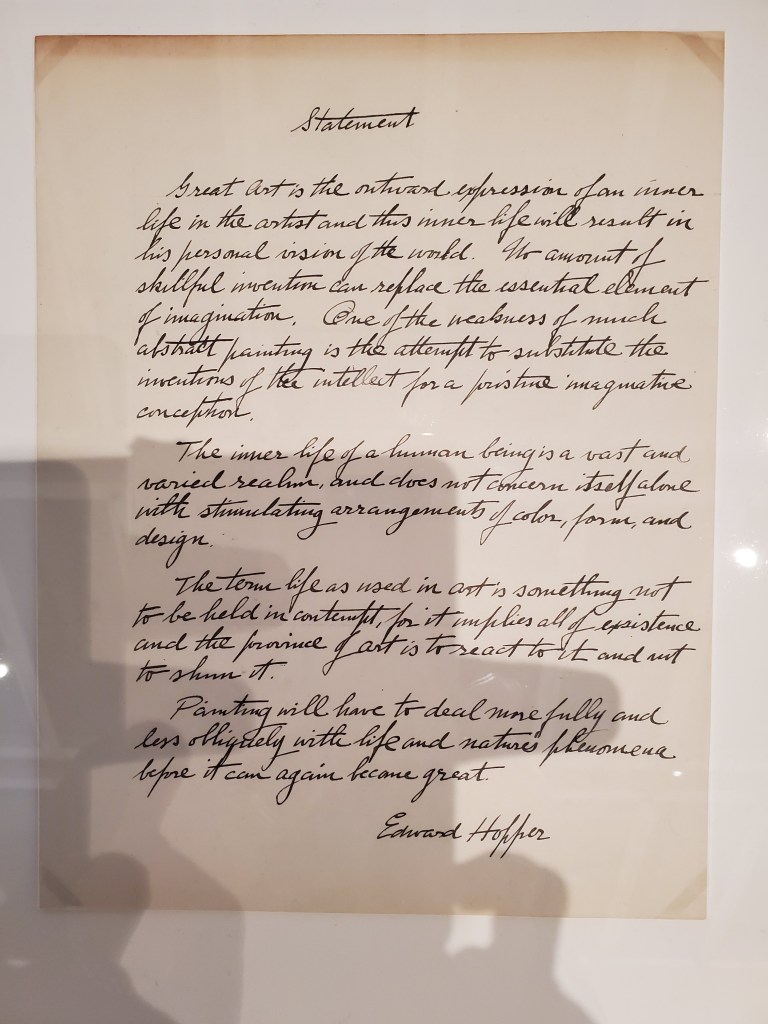 Statement
Great art is the outward expression of an inner
life in the artist and this inner life will result in
his personal vision of the world. No amount of
skillful invention can replace the essential element
of imagination. One of the weakness of much
abstract painting is the attempt to substitute the
inventions of the intellect for a pristine imaginative
conception.
The inner life of a human being is a vast and
varied realm, and does not concern itself alone
with stimulating arrangements of color, form, and
design.
The term life as used in art is something not
to be held in contempt, for it implies all of existence
and the province of art is to react to it and not
to shun it.
Painting will have to deal more fully and
less obliquely with life and nature's phenomena
before it can again become great.
Edward Hopper